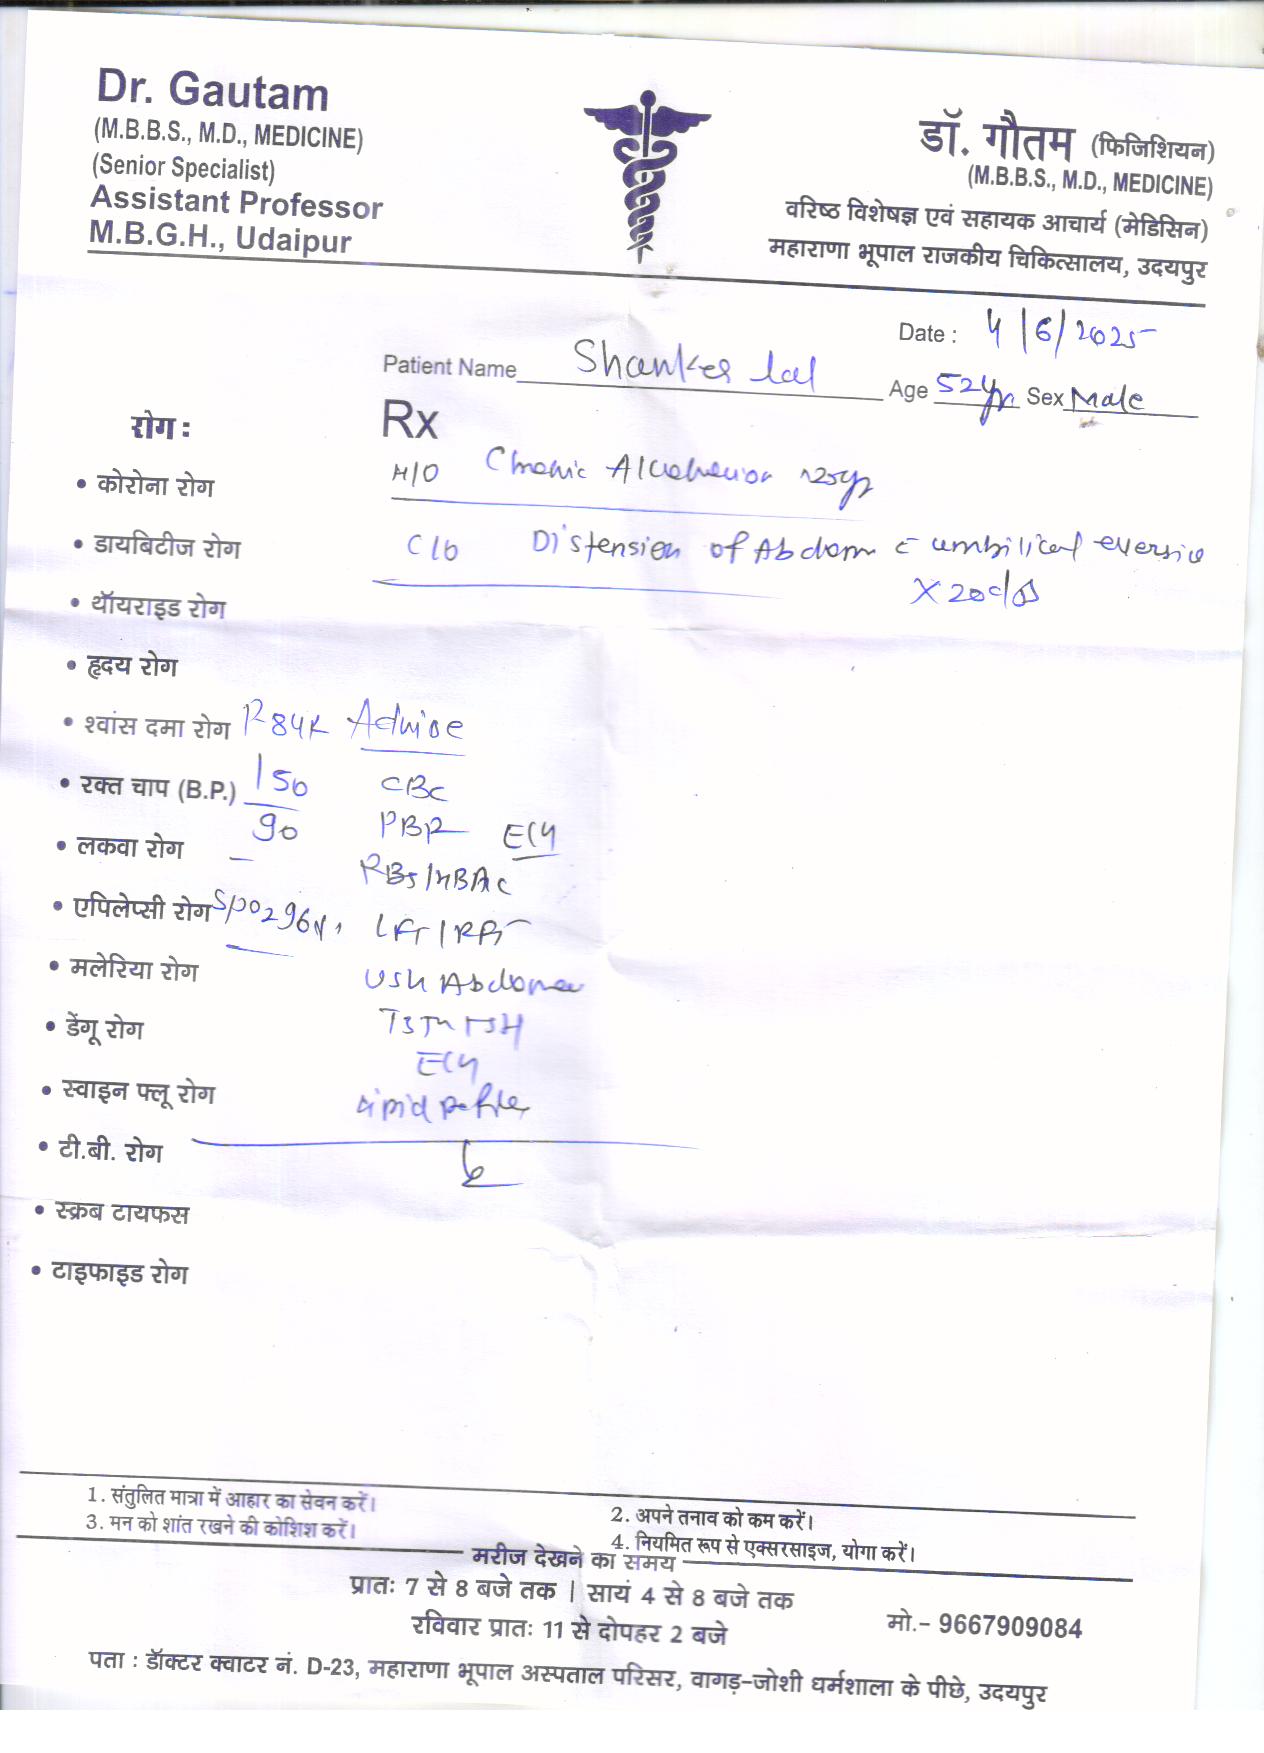 Dr. Gautam
(M.B.B.S., M.D., MEDICINE)
(Senior Specialist)
Assistant Professor
M.B.G.H., Udaipur
डॉ. गौतम (फिजिशियन)
(M.B.B.S., M.D., MEDICINE)
वरिष्ठ विशेषज्ञ एवं सहायक आचार्य (मेडिसिन)
महाराणा भूपाल राजकीय चिकित्सालय, उदयपुर
Date : 4/6/2025
Patient Name Shanker Lal Age 52yr Sex Male
रोग :
Rx
H/O Chronic
C/O Distension of Abdom c umbilical
X 20d
• कोरोना रोग
• डायबिटीज रोग
• थॉयराइड रोग
• हृदय रोग
• श्वांस दमा रोग
• रक्त चाप (B.P.) 150
90
• लकवा रोग
• एपिलेप्सी रोग SpO2 96%
• मलेरिया रोग
• डेंगू रोग
• स्वाइन फ्लू रोग
• टी.बी. रोग
• स्क्रब टायफस
• टाइफाइड रोग
Advise
CBC
PBF ECG
RBS/HBA1C
LFT/RFT
USG Abdomen
T3 T4 TSH
ECG
Lipid profile
1. संतुलित मात्रा में आहार का सेवन करें।
2. अपने तनाव को कम करें।
3. मन को शांत रखने की कोशिश करें।
4. नियमित रूप से एक्सरसाइज, योगा करें।
मरीज देखने का समय
प्रातः 7 से 8 बजे तक | सायं 4 से 8 बजे तक
रविवार प्रातः 11 से दोपहर 2 बजे
मो.- 9667909084
पता : डॉक्टर क्वाटर नं. D-23, महाराणा भूपाल अस्पताल परिसर, वागड़-जोशी धर्मशाला के पीछे, उदयपुर